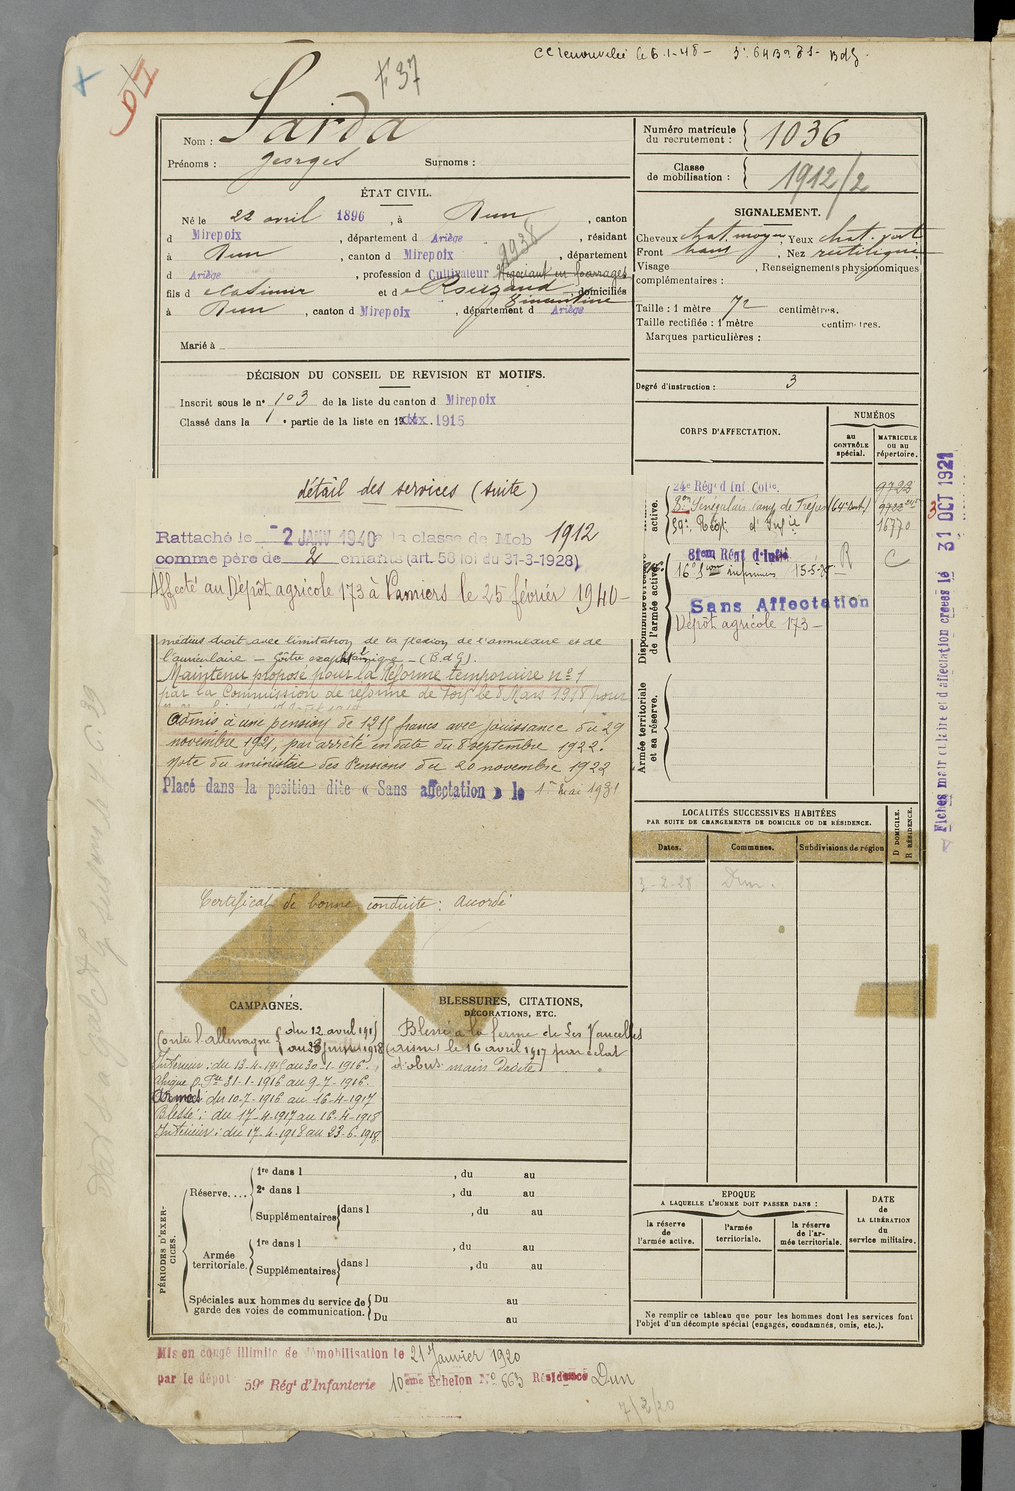 CC renouvelée le 6-1-48 -
F 37
Nom : Sarda
Prénoms : Georges Surnoms :
Numéro matricule du recrutement : 1036
Classe de mobilisation : 1912/2
ÉTAT CIVIL.
Né le 22 avril 1896, à Dun, canton
d Mirepoix, département d Ariège, résidant
à Dun, canton d Mirepoix, département
d Ariège, profession d Cultivateur Négociant en fourrages
1938
fils d e Casimir et d e Rouzaud Simentine, domiciliés
à Dun, canton d Mirepoix, département d Ariège
Marié à
SIGNALEMENT.
Cheveux chat. moyen, Yeux chat. vert
Front haut, Nez rectiligne
Visage , Renseignements physionomiques
complémentaires :
Taille : 1 mètre 72 centimètres.
Taille rectifiée : 1 mètre centimètres.
Marques particulières :
Degré d'instruction : 3
DÉCISION DU CONSEIL DE REVISION ET MOTIFS.
Inscrit sous le n° 103 de la liste du canton d Mirepoix
Classé dans la 1e partie de la liste en 1915
CORPS D'AFFECTATION.
NUMÉROS
au CONTRÔLE spécial.
MATRICULE ou au répertoire.
active.
24e Régt d'Inf. Colle. 9722
Bon Sénégalais camp de Fréjus (64e Bat.)
59e Régt d'Infie 16770
Disponibilité et réserve de l'armée active.
81em Régt d'Infie R C
15-5-
Sans Affectation
Dépôt agricole 173 -
Armée territoriale et sa réserve.
détail des services (suite)
Rattaché le - 2 JANV 1940 à la classe de Mob 1912
comme père de 2 enfants (art. 58 loi du 31-3-1928)
Affecté au Dépôt agricole 173 à Pamiers le 25 février 1940 -
médius droit avec limitation de la flexion de l'annulaire et de
l'auriculaire - Goître exophtalmique - (B.d.G).
Maintenu proposé pour la Réforme temporaire n° 1
par la Commission de réforme de Foix le 8 Mars 1918 pour
Admis à une pension de 1215 francs avec jouissance du 29
novembre 1921, par arrêté en date du 8 septembre 1922.
Note du ministère des Pensions du 20 novembre 1922
Placé dans la position dite « Sans affectation » le 1er Mai 1931
Certificat de bonne conduite : Accordé
LOCALITÉS SUCCESSIVES HABITÉES
PAR SUITE DE CHANGEMENTS DE DOMICILE OU DE RÉSIDENCE.
Dates. Communes. Subdivisions de région D DOMICILE. R RÉSIDENCE.
3-2-28 Dun.
CAMPAGNES.
Contre l'Allemagne du 12 avril 1915
au 23 juin 1918
Intérieur : du 12-4-1915 au 30-1-1916.
Afrique 31-1-1916 au 9-7-1916.
Armées du 10-7-1916 au 16-4-1917
Blessé : du 17-4-1917 au 16-4-1918
Intérieur : du 17-4-1918 au 23-6-1918
BLESSURES, CITATIONS,
DÉCORATIONS, ETC.
Blessé à la ferme de Les Vaucelles
(Aisne) le 16 avril 1917 par éclat
d'obus main droite
PÉRIODES D'EXERCICES.
Réserve....
1re dans l , du au
2e dans l , du au
Supplémentaires dans l , du au
Armée territoriale.
1re dans l , du au
Supplémentaires dans l , du au
Spéciales aux hommes du service de garde des voies de communication.
Du au
Du au
EPOQUE
A LAQUELLE L'HOMME DOIT PASSER DANS :
la réserve de l'armée active.
l'armée territoriale.
la réserve de l'armée territoriale.
DATE de LA LIBÉRATION du service militaire.
Ne remplir ce tableau que pour les hommes dont les services font
l'objet d'un décompte spécial (engagés, condamnés, omis, etc.).
Fiches matriculaire et d'affectation créées le 31 OCT 1921
Mis en congé illimité de démobilisation le 21 Janvier 1920
par le dépôt 59e Régt d'Infanterie 10ème Echelon N° 663 Résidence Dun
7/2/20